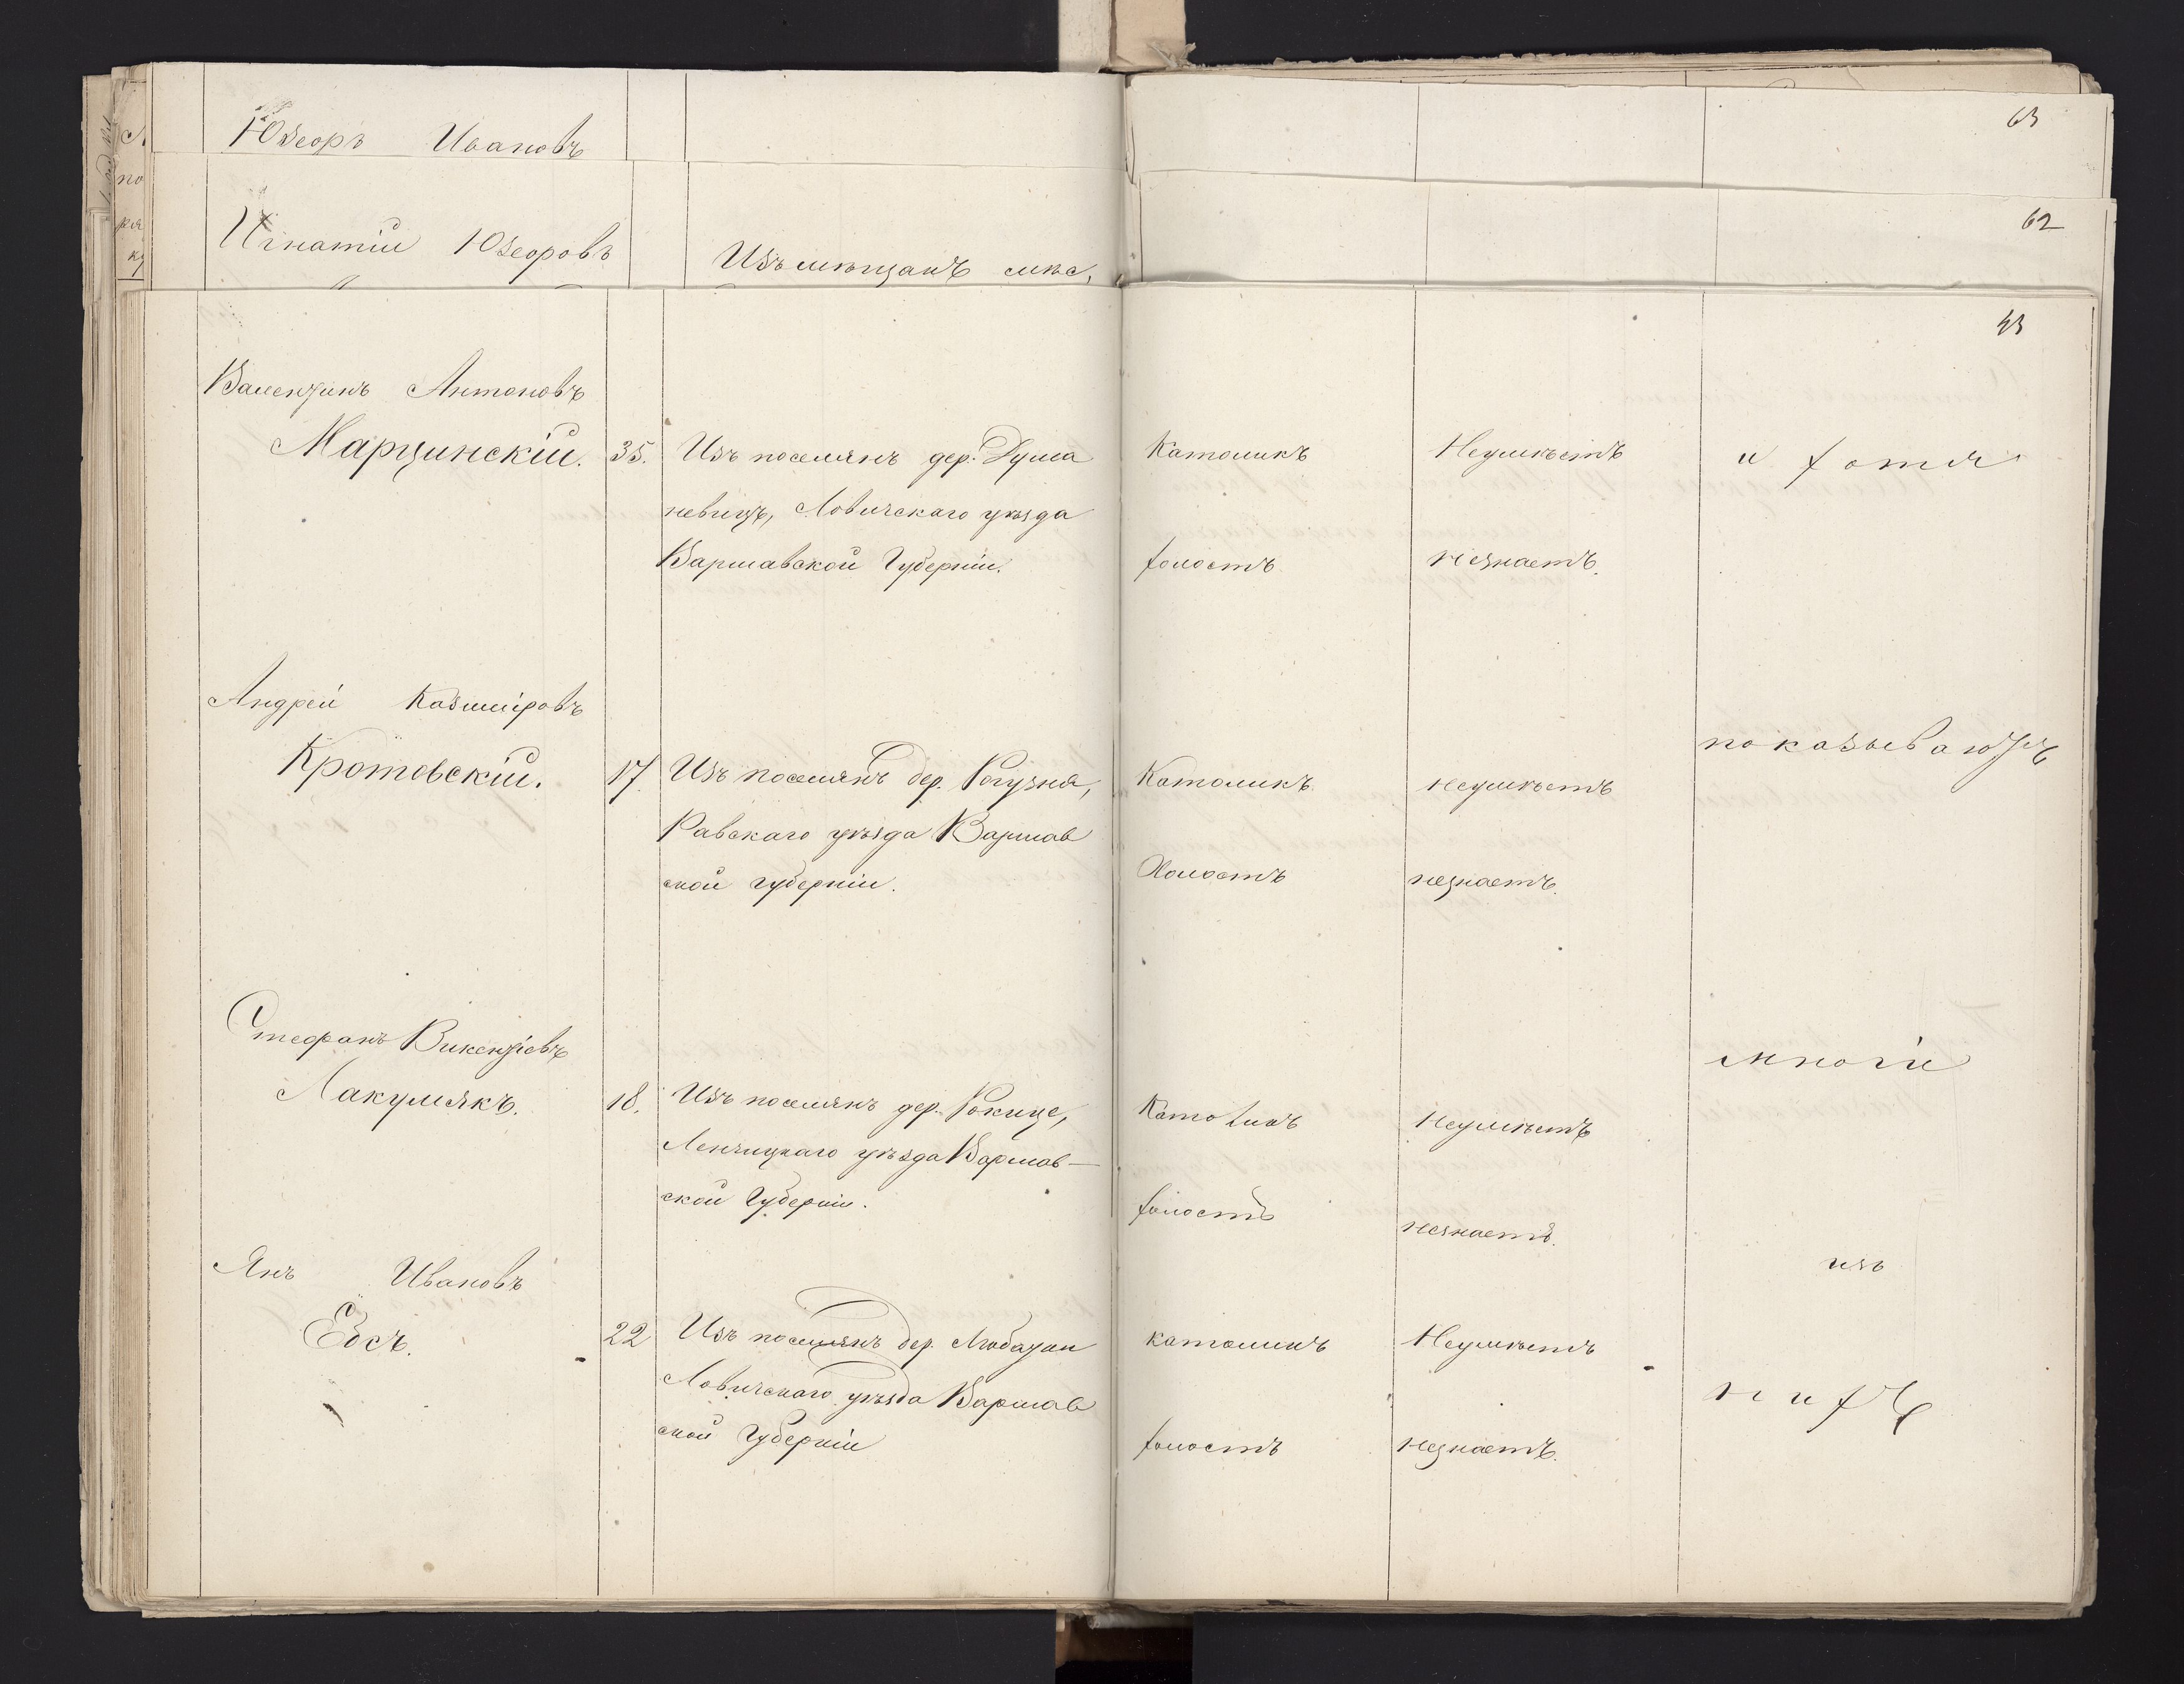 63
Юзефъ Ивановъ
62
Игнатій Юзефовъ
Изъ мѣщанъ мѣс,
43
Валентинъ Антоновъ
Марцинскій. 35. Изъ поселянъ дер. Дума Католикъ Неумѣетъ и хотя
невицъ, Ловичскаго уѣзда
Варшавской Губерніи. холостъ незнаетъ.
Андрей Казиміровъ
показываютъ
Кротовскій. 17. Изъ поселянъ дер. Рогузня, Католикъ неумѣетъ
Равскаго уѣзда Варшав
ской губерніи. Холостъ незнаетъ.
Стефанъ Викентіевъ
многіе
Лакумякъ. 18. Изъ поселянъ дер. Рокице, Католикъ Неумѣетъ
Ленчицкаго уѣзда Варшав-
ской Губерніи. холостъ незнаетъ.
Янъ Ивановъ
изъ
Ёосъ. 22 Изъ поселянъ дер. католикъ Неумѣетъ
Ловичскаго уѣзда Варшав
нихъ
ской Губерніи холостъ незнаетъ.